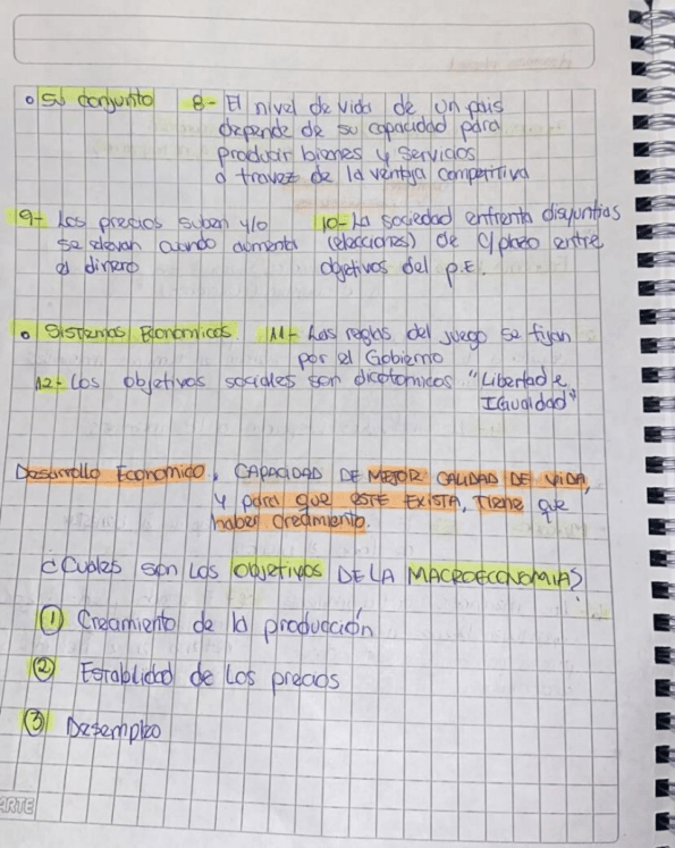 • Su conjunto 8- El nivel de vida de un pais
depende de su capacidad para
producir bienes y servicios
a travez de la ventja competitiva
9- Los precios suben y/o
se elevan cuando aumenta
el dinero
10- La sociedad enfrenta disyuntias
(elecciones) de C/plazo entre
objetivos del p.E.
• Sistemas Economicos. 11- Las reglas del juego se fijan
por el Gobierno
12- Los objetivos sociales son dicotomicos "Libertad e
IGualdad"
Desarrollo Economico, CAPACIDAD DE MEJOR CALIDAD DE VIDA,
y para que ESTE EXISTA, TIENE que
haber crecimiento.
¿Cuales son los objetivos DE LA MACROECONOMIA?
① Creamiento de la producción
② Establidad de los precios
③ Desempleo
ARTE